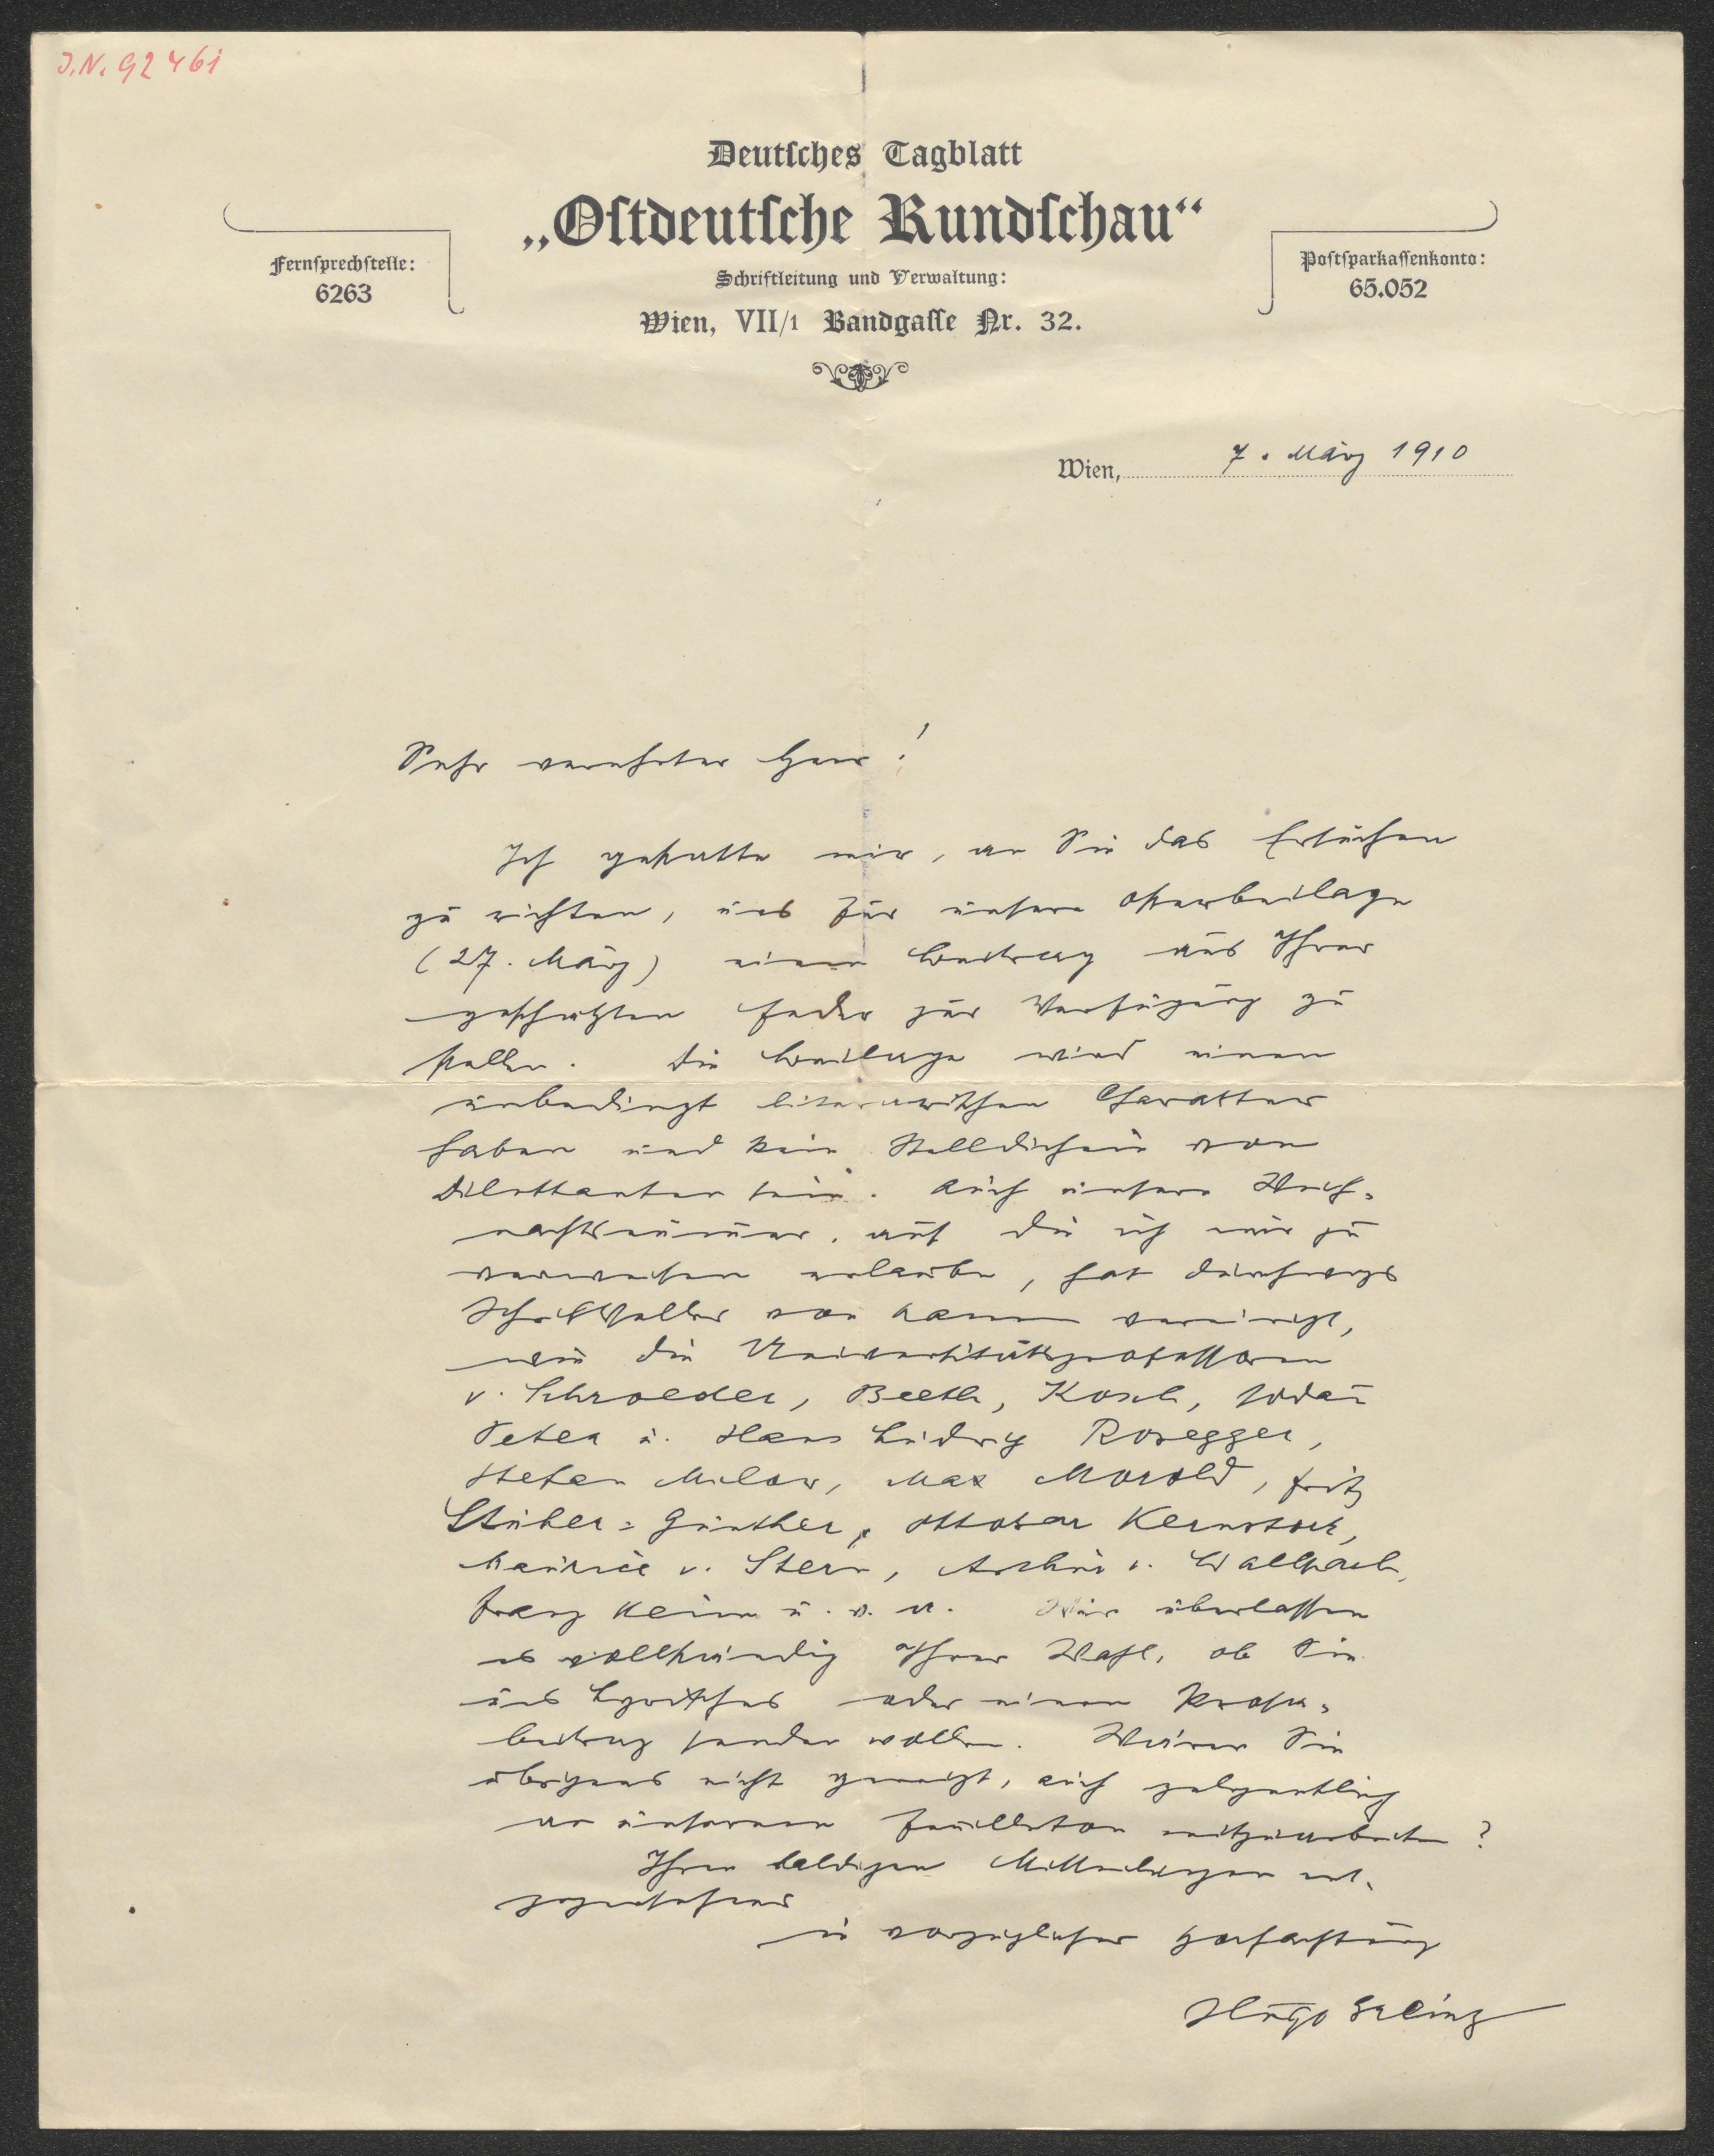 J.N. 92461
Deutsches Tagblatt
„Ostdeutsche Rundschau“
Fernsprechstelle:
6263
Schriftleitung und Verwaltung:
Wien, VII/1 Bandgasse Nr. 32.
Postsparkassenkonto:
65.052
Wien, 7. März 1910
Sehr verehrter Herr!
Ich gestatte mir, an Sie das Ersuchen
zu richten, uns für unsere Osterbeilage
(27. März) einen Beitrag aus Ihrer
geschätzten Feder zur Verfügung zu
stellen. Die Beilage wird einen
unbedingt literarischen Charakter
haben und kein Stelldichein von
Dilettanten sein. Auch unsere Weih-
nachtsnummer, auf die ich mir zu
verweisen erlaube, hat durchwegs
Schriftsteller von Namen vereinigt,
wie die Universitätsprofessoren
v. Schroeder, Beeth, Kosch, sodann
Peter u. Hans Ludwig Rosegger,
Stefan Milow, Max Morold, Fritz
Stüber-Günther, Ottokar Kernstock,
Maurice v. Stern, Arthur v. Wallpach,
Franz Keim u. v. a. Wir überlassen
es vollständig Ihrer Wahl, ob Sie
uns Lyrisches oder einen Prosa-
beitrag senden wollen. Wären Sie
übrigens nicht geneigt, auch gelegentlich
an unserem Feuilleton mitzuarbeiten?
Ihren baldigen Mitteilungen ent-
gegensehend
in vorzüglicher Hochachtung
Hugo Greinz